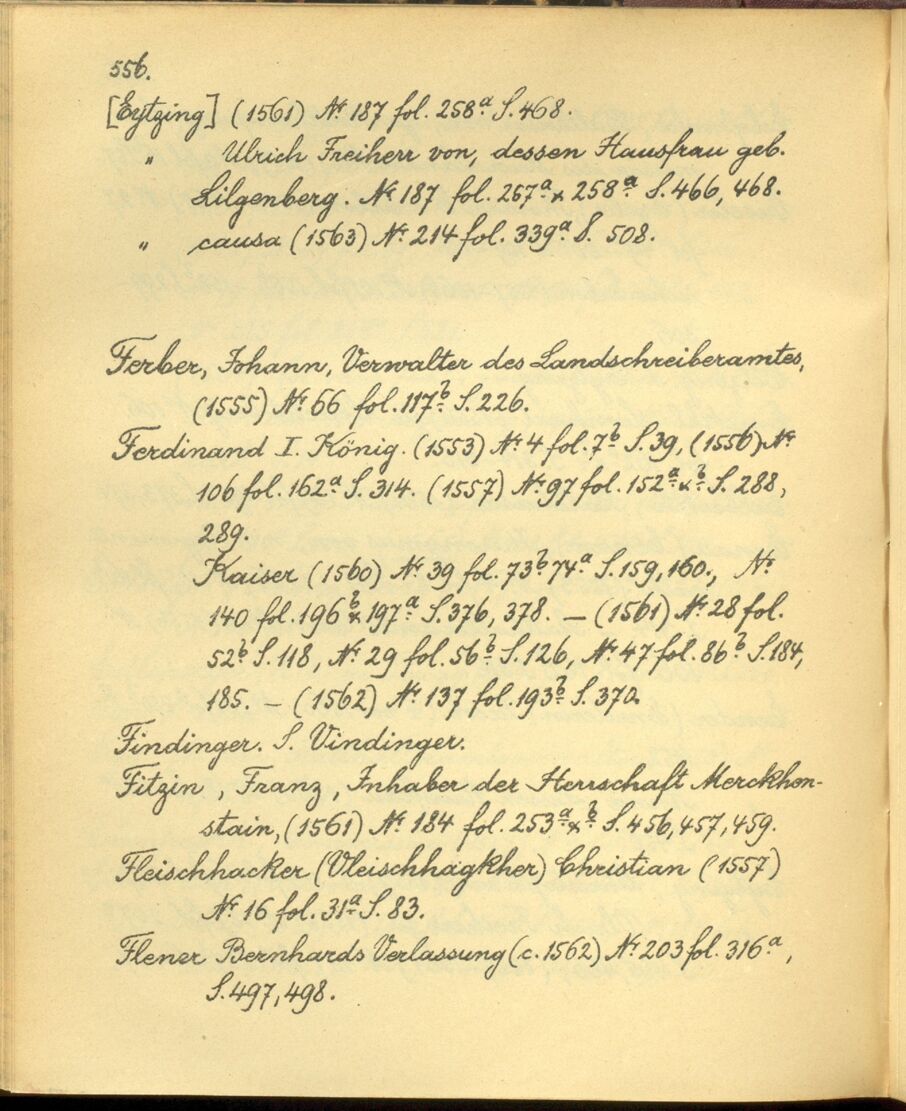 556.
[Eytzing] (1561) Nr 187 fol. 258a S. 468.
" Ulrich Freiherr von, dessen Hausfrau geb.
Lilgenberg. Nr 187 fol. 257a & 258a S. 466, 468.
" causa (1563) Nr 214 fol. 339a S. 508.
Ferber, Johann, Verwalter des Landschreiberamtes,
(1555) Nr 66 fol. 117b S. 226.
Ferdinand I. König. (1553) Nr 4 fol. 7b S. 39, (1556) Nr
106 fol. 162a S. 314. (1557) Nr 97 fol. 152a & b S. 288,
289.
Kaiser (1560) Nr 39 fol. 73b 74a S. 159, 160., Nr
140 fol. 196b & 197a S. 376, 378. — (1561) Nr 28 fol.
52b S. 118, Nr 29 fol. 56b S. 126, Nr 47 fol. 86b S. 184,
185. — (1562) Nr 137 fol. 193b S. 370.
Findinger. S. Vindinger.
Fitzin, Franz, Inhaber der Herrschaft Merckhen-
stain, (1561) Nr 184 fol. 253a & b S. 456, 457, 459.
Fleischhacker (Vleischhagkher) Christian (1557)
Nr 16 fol. 31a S. 83.
Flener Bernhards Verlassung (c. 1562) Nr 203 fol. 316a,
S. 497, 498.